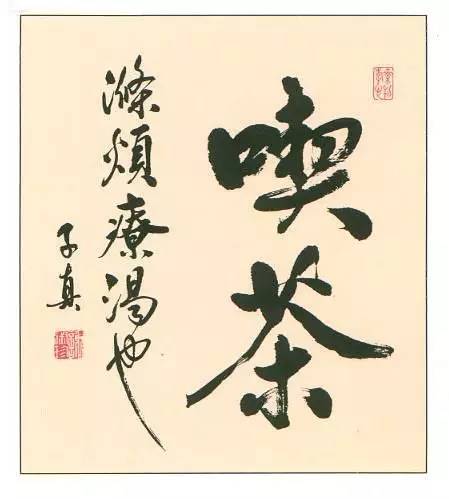 喫茶
滌煩療渴也
子真